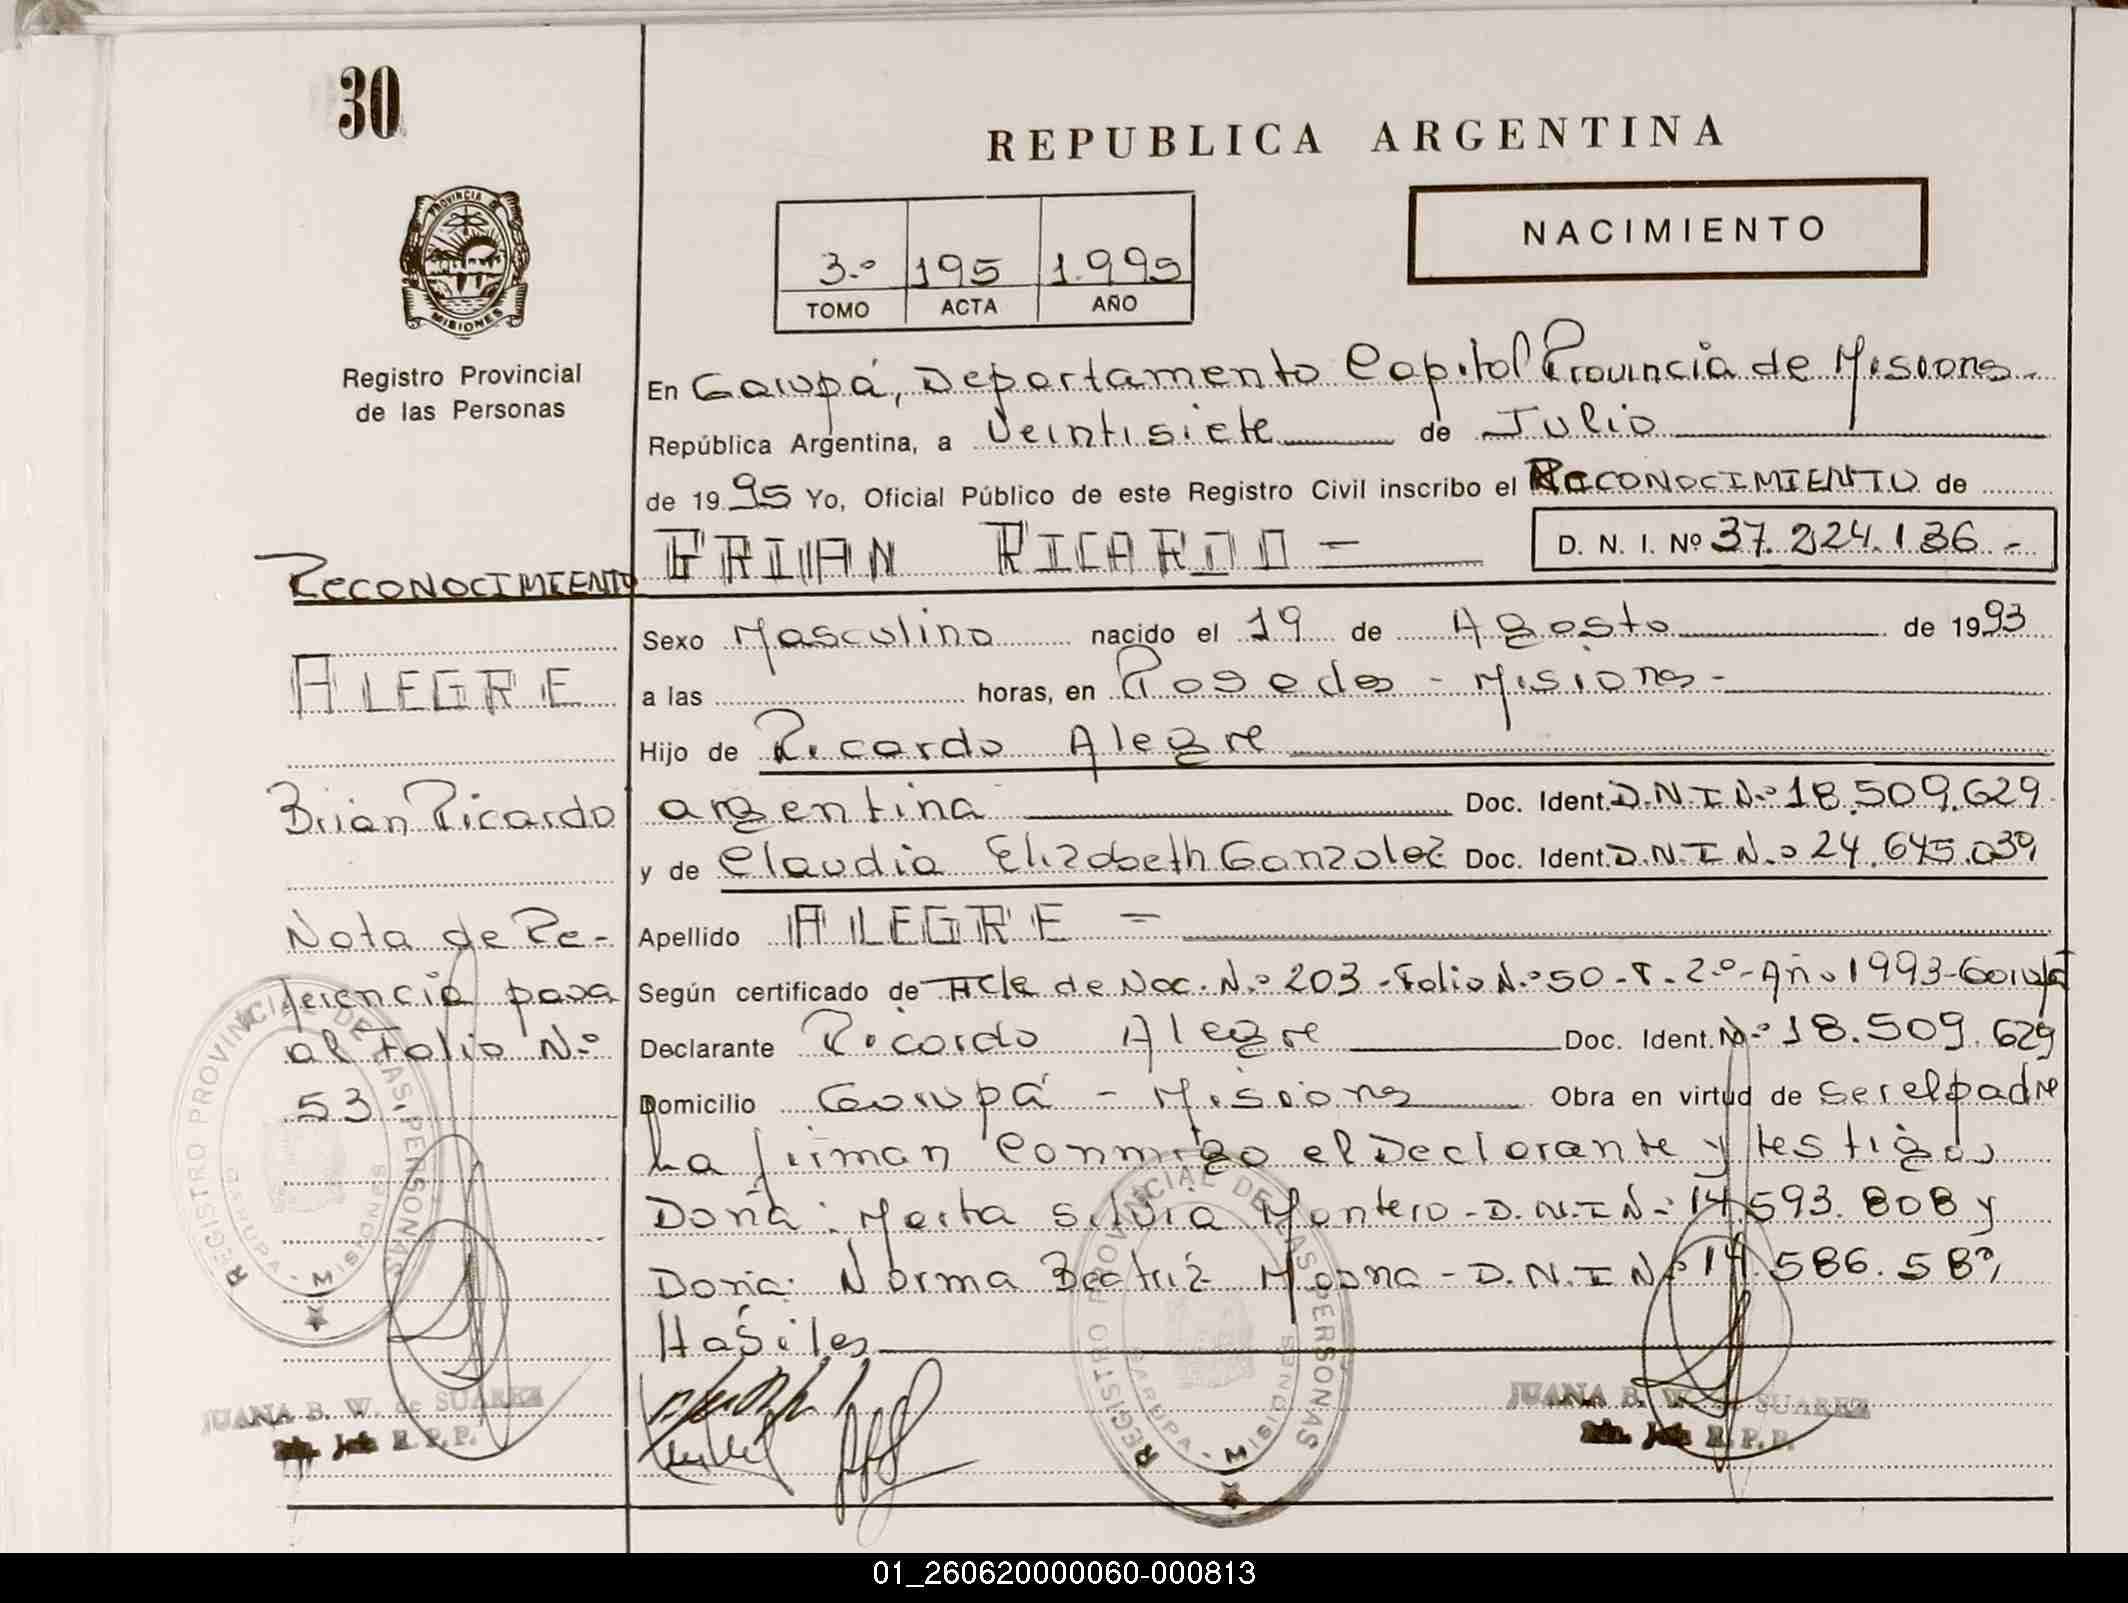 30
REPUBLICA ARGENTINA
PROVINCIA DE
MISIONES
Registro Provincial
de las Personas
NACIMIENTO
3.º 195 1.995
TOMO ACTA AÑO
En Garupá, Departamento Capital Provincia de Misiones.
República Argentina, a Veintisiete de Julio
de 1995 Yo, Oficial Público de este Registro Civil inscribo el RECONOCIMIENTO de
BRIAN RICARDO - D. N. I. Nº 37.224.136.-
RECONOCIMIENTO
Sexo Masculino nacido el 19 de Agosto de 1993
ALEGRE
a las horas, en Posadas - Misiones -
Hijo de Ricardo Alegre
Brian Ricardo
argentina Doc. Ident. D.N.I N.º 18.509.629
y de Claudia Elizabeth Gonzalez Doc. Ident. D.N.I N.º 24.645.039
Apellido ALEGRE -
Nota de Re-
ferencia pasa
al Folio N.º
53.-
Según certificado de Acta de Nac. N.º 203 - Folio N.º 50 - T. 2.º - Año 1993 - Garupá
Declarante Ricardo Alegre Doc. Ident. N.º 18.509.629
Domicilio Garupá - Misiones Obra en virtud de ser el padre
La firman conmigo el Declarante y testigos
Doña: Marta Silvia Montero - D.N.I N.º 14.593.808 y
Doña: Norma Beatriz - D.N.I N.º 14.586.589,
Hábiles
REGISTRO PROVINCIAL DE LAS PERSONAS
GARUPA - MISIONES
REGISTRO PROVINCIAL DE LAS PERSONAS
GARUPA - MISIONES
JUANA B. W. de SUAREZ
R. P. P.
JUANA B. W. de SUAREZ
R. P. P.
01_260620000060-000813